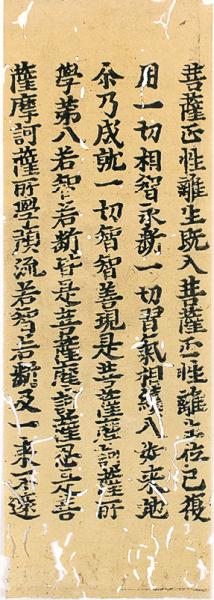 菩薩正性離生既入菩薩正性離生位已復
用一切相智永斷一切習氣相續入如來地
尒乃成就一切智智善現是菩薩摩訶薩所
學第八若智若斷皆是菩薩摩訶薩忍菩
薩摩訶薩所學預流若智若斷及一來不還